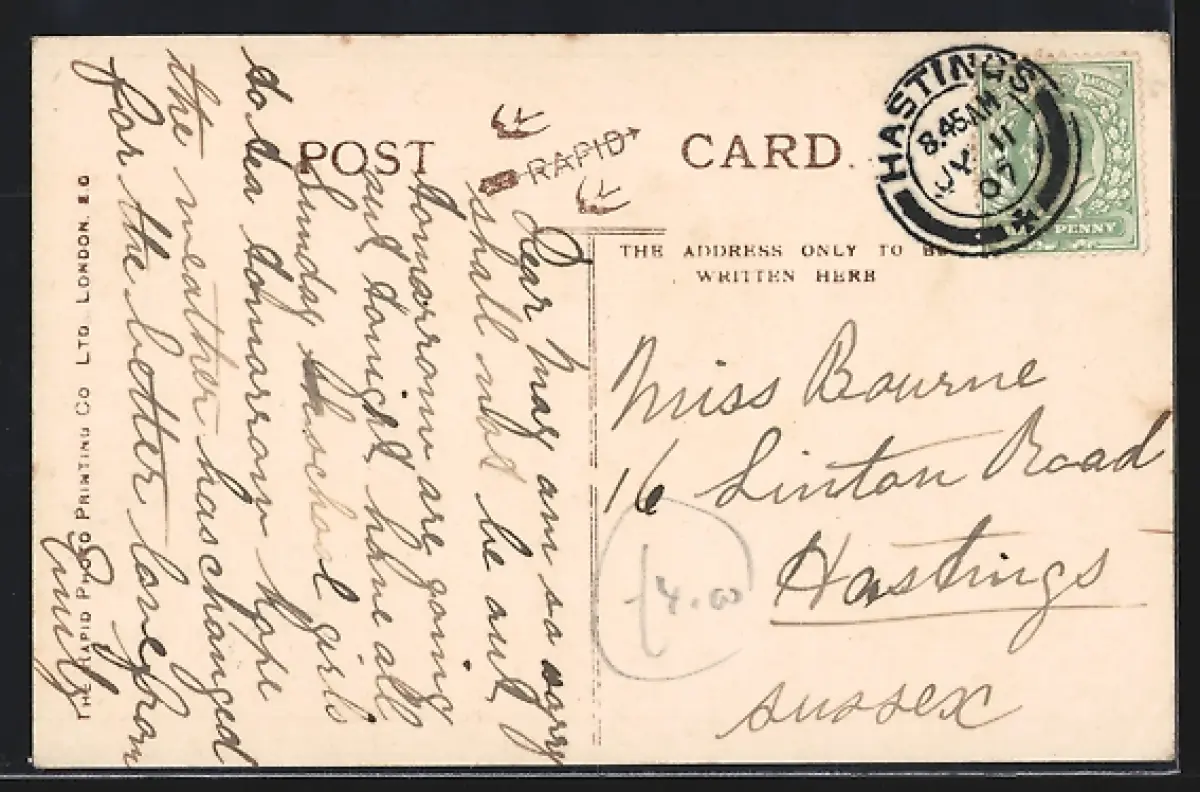 POST CARD.
RAPID
THE ADDRESS ONLY TO BE
WRITTEN HERE
HASTINGS
8.45AM
JY 11
07
PENNY
Dear May am so sorry
shall not be out
tomorrow are going
out tonight have all
Sunday school girls
to tea tomorrow hope
the weather has changed
for the better love from
Emily
Miss Bourne
16 Linton Road
Hastings
Sussex
£4.00
THE RAPID PHOTO PRINTING CO LTD. LONDON. E.C